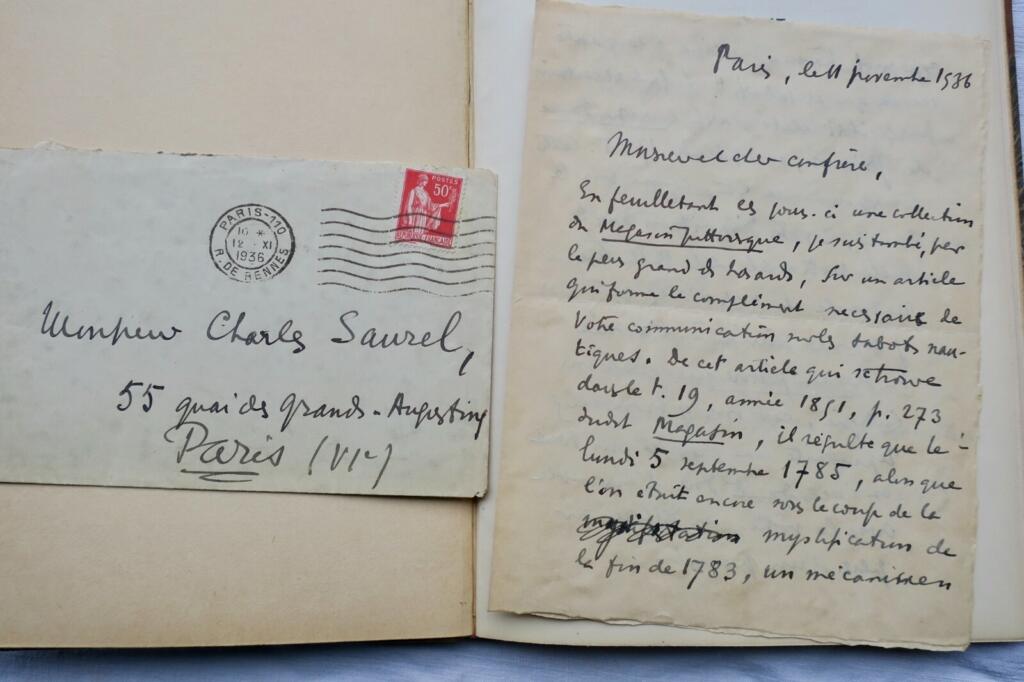 PARIS-110
R. DE RENNES
12 XI
1936
POSTES
50c
REPUBLIQUE FRANÇAISE
Monsieur Charles Saurel,
55 quai des Grands-Augustins
Paris (VIe)
Paris, le 11 novembre 1936
Monsieur et cher confrère,
En feuilletant ces jours-ci une collection
du Magasin pittoresque, je suis tombé, par
le plus grand des hasards, sur un article
qui forme le complément nécessaire de
Votre communication sur les sabots nau-
tiques. De cet article qui se trouve
dans le t. 19, année 1851, p. 273
dudit Magasin, il résulte que le
lundi 5 septembre 1785, alors que
l'on était encore sous le coup de la
mystification de
la fin de 1783, un mécanicien